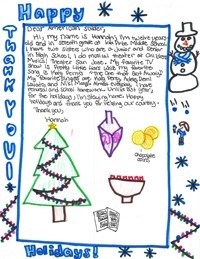 Happy
THANK YOU!
Dear American Soldier,
Hi, my name is Hannah, I'm twelve years
old and in seventh grade at Middle School.
I have two sisters who are a Junior and Senior
in High School. I do musical theater at Children's
Musical Theater San Jose. My favorite TV
show is Pretty Little Liars while my favorite
song is Katy Perry's "The One That Got Away."
My favorite singers are Katy Perry, Adele, Demi
Lovato, and
for the holidays I'm staying home. Happy
holidays and thank you for serving our country.
Thank you,
Hannah
chocolate
coins
Holidays!